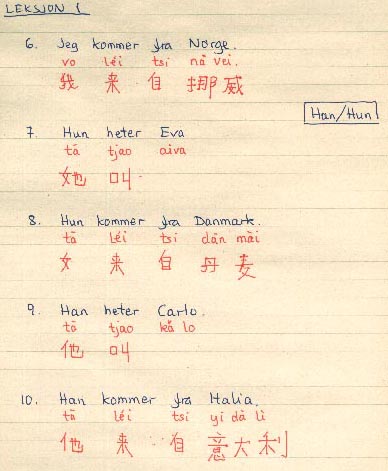 LEKSJON 1
6. Jeg kommer fra Norge.
vo léi tsi nå vei.
我 来 自 挪 威
Han/Hun
7. Hun heter Eva
tā tjao aiva
她 叫
8. Hun kommer fra Danmark.
tā léi tsi dān mài
女 来 自 丹 麦
9. Han heter Carlo.
tā tjao kǎ lo
他 叫
10. Han kommer fra Italia.
tā léi tsi yi dà lì
他 来 自 意 大 利